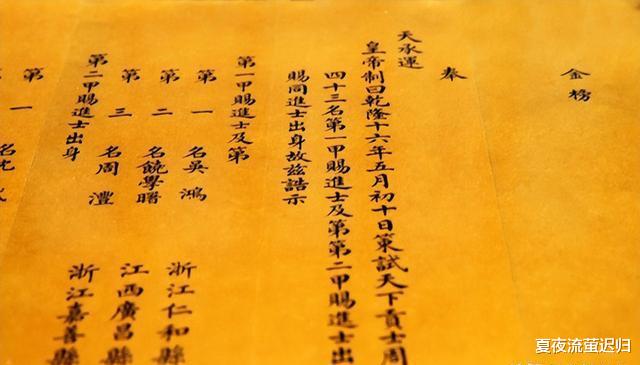 金榜
奉
天承運
皇帝制曰乾隆十六年五月初十日策試天下貢士周
四十三名第一甲賜進士及第第二甲賜進士出
賜同進士出身故茲誥示
第一甲賜進士及第
第一名吳鴻 浙江仁和縣
第二名饒學曙 江西廣昌縣
第三名周澧 浙江嘉善縣
第二甲賜進士出身
第一名沈
夏夜流萤迟归